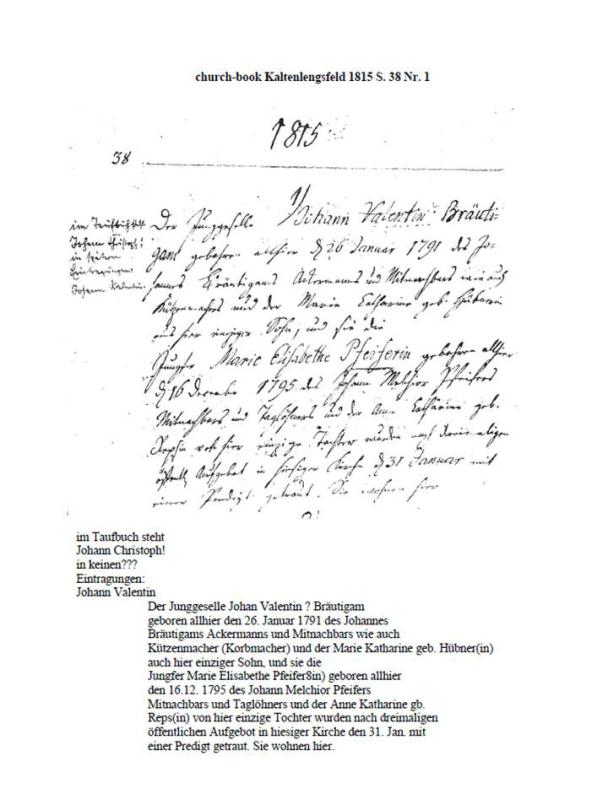 church-book Kaltenlengsfeld 1815 S. 38 Nr. 1
1815
38
1/
im Taufbuch steht
Johann Christoph!
in keinen
Eintragungen
Johann Valentin
Der Junggeselle Johann Valentin Bräuti-
gam gebohren allhier d 26 Januar 1791 des Jo-
hannes Bräutigams Ackermanns und Mitnachbars wie auch
Kützenmachers und der Marie Catharine geb. Hübnerin
auch hier einziger Sohn, und sie die
Jungfer Marie Elisabethe Pfeiferin gebohren allhier
d 16 December 1795 des Johann Melchior Pfeifers
Mitnachbars und Taglöhners und der Anne Catharine geb.
von hier einzige Tochter wurden nach dreimaligen
öffentl. Aufgebot in hiesiger Kirche d 31 Januar mit
einer Predigt getraut. Sie wohnen hier
im Taufbuch steht
Johann Christoph!
in keinen???
Eintragungen:
Johann Valentin
Der Junggeselle Johan Valentin ? Bräutigam
geboren allhier den 26. Januar 1791 des Johannes
Bräutigams Ackermanns und Mitnachbars wie auch
Kützenmacher (Korbmacher) und der Marie Katharine geb. Hübner(in)
auch hier einziger Sohn, und sie die
Jungfer Marie Elisabethe Pfeifer8in) geboren allhier
den 16.12. 1795 des Johann Melchior Pfeifers
Mitnachbars und Taglöhners und der Anne Katharine gb.
Reps(in) von hier einzige Tochter wurden nach dreimaligen
öffentlichen Aufgebot in hiesiger Kirche den 31. Jan. mit
einer Predigt getraut. Sie wohnen hier.